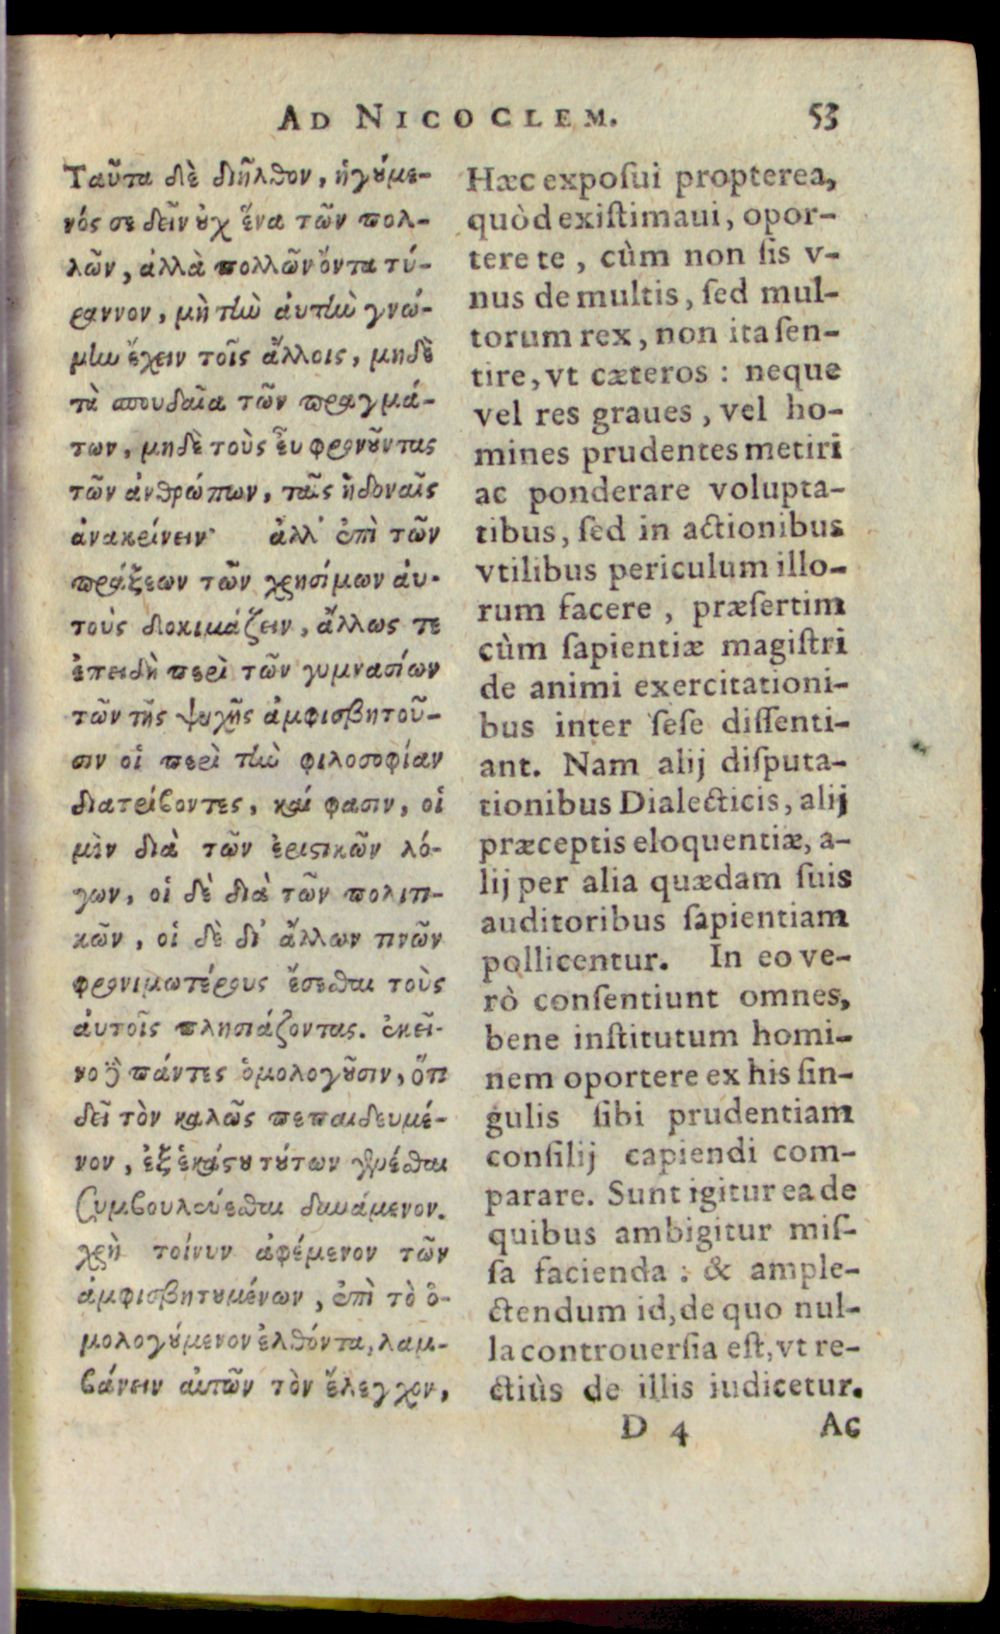 AD NICOCLEM. 53
Ταῦτα δὲ διῆλθον, ἡγούμε-
νός σε δεῖν οὐχ ἕνα τῶν πολ-
λῶν, ἀλλὰ πολλῶν ὄντα τύ-
ραννον, μὴ τὴν αὐτὴν γνώ-
μην ἔχειν τοῖς ἄλλοις, μηδὲ
τὰ σπουδαῖα τῶν πραγμά-
των, μηδὲ τοὺς εὖ φρονοῦντας
τῶν ἀνθρώπων, ταῖς ἡδοναῖς
ἀνακρίνειν· ἀλλ' ἐπὶ τῶν
πράξεων τῶν χρησίμων αὐ-
τοὺς δοκιμάζειν, ἄλλως τε
ἐπειδὴ περὶ τῶν γυμνασίων
τῶν τῆς ψυχῆς ἀμφισβητοῦ-
σιν οἱ περὶ τὴν φιλοσοφίαν
διατρίβοντες, καί φασιν, οἱ
μὲν διὰ τῶν ἐριστικῶν λό-
γων, οἱ δὲ διὰ τῶν πολιτι-
κῶν, οἱ δὲ δι' ἄλλων τινῶν
φρονιμωτέρους ἔσεσθαι τοὺς
αὐτοῖς πλησιάζοντας. ἐκεῖ-
νο δὲ πάντες ὁμολογοῦσιν, ὅτι
δεῖ τὸν καλῶς πεπαιδευμέ-
νον, ἐξ ἑκάστου τούτων γενέσθαι
συμβουλεύεσθαι δυνάμενον.
χρὴ τοίνυν ἀφέμενον τῶν
ἀμφισβητουμένων, ἐπὶ τὸ ὁ-
μολογούμενον ἐλθόντα, λαμ-
βάνειν αὐτῶν τὸν ἔλεγχον,
Hæc exposui propterea,
quòd existimaui, opor-
tere te, cùm non sis v-
nus de multis, sed mul-
torum rex, non ita sen-
tire, vt cæteros : neque
vel res graues, vel ho-
mines prudentes metiri
ac ponderare volupta-
tibus, sed in actionibus
vtilibus periculum illo-
rum facere, præsertim
cùm sapientiæ magistri
de animi exercitationi-
bus inter sese dissenti-
ant. Nam alij disputa-
tionibus Dialecticis, alij
præceptis eloquentiæ, a-
lij per alia quædam suis
auditoribus sapientiam
pollicentur. In eo ve-
rò consentiunt omnes,
bene institutum homi-
nem oportere ex his sin-
gulis sibi prudentiam
consilij capiendi com-
parare. Sunt igitur ea de
quibus ambigitur mis-
sa facienda : & ample-
ctendum id, de quo nul-
la controuersia est, vt re-
ctiùs de illis iudicetur.
D 4 Ac